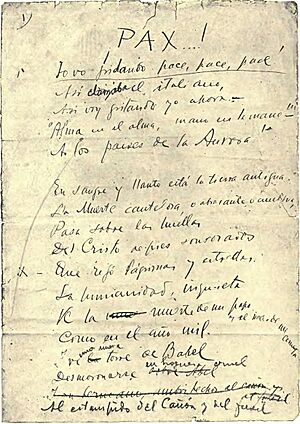 PAX...!
Io vo gridando pace, pace, pace!
Así clamaba el italiano,
Así voy gritando yo ahora—
"Alma en el alma, mano en la mano"
A los países de la Aurora!
En sangre y llanto está la tierra antigua.
La Muerte cautelosa o abrasante o ambigua
Pasa sobre las huellas
Del Cristo de pies sonrosados
Que regó lágrimas y estrellas.
La humanidad, inquieta
Ve la muerte de un papa
Como en el año mil.
y torre de Babel
Desmoronarse
Al estampido del Cañón y del fusil